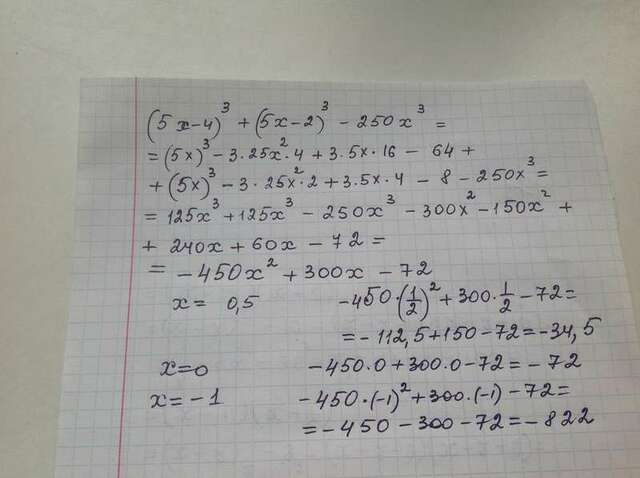 (5x-4)³ + (5x-2)³ - 250x³ =
= (5x)³ - 3·25x²·4 + 3·5x·16 - 64 +
+ (5x)³ - 3·25x²·2 + 3·5x·4 - 8 - 250x³ =
= 125x³ + 125x³ - 250x³ - 300x² - 150x² +
+ 240x + 60x - 72 =
= -450x² + 300x - 72
x = 0,5 -450·(1/2)² + 300·1/2 - 72 =
= -112,5 + 150 - 72 = -34,5
x=0 -450·0 + 300·0 - 72 = -72
x = -1 -450·(-1)² + 300·(-1) - 72 =
= -450 - 300 - 72 = -822